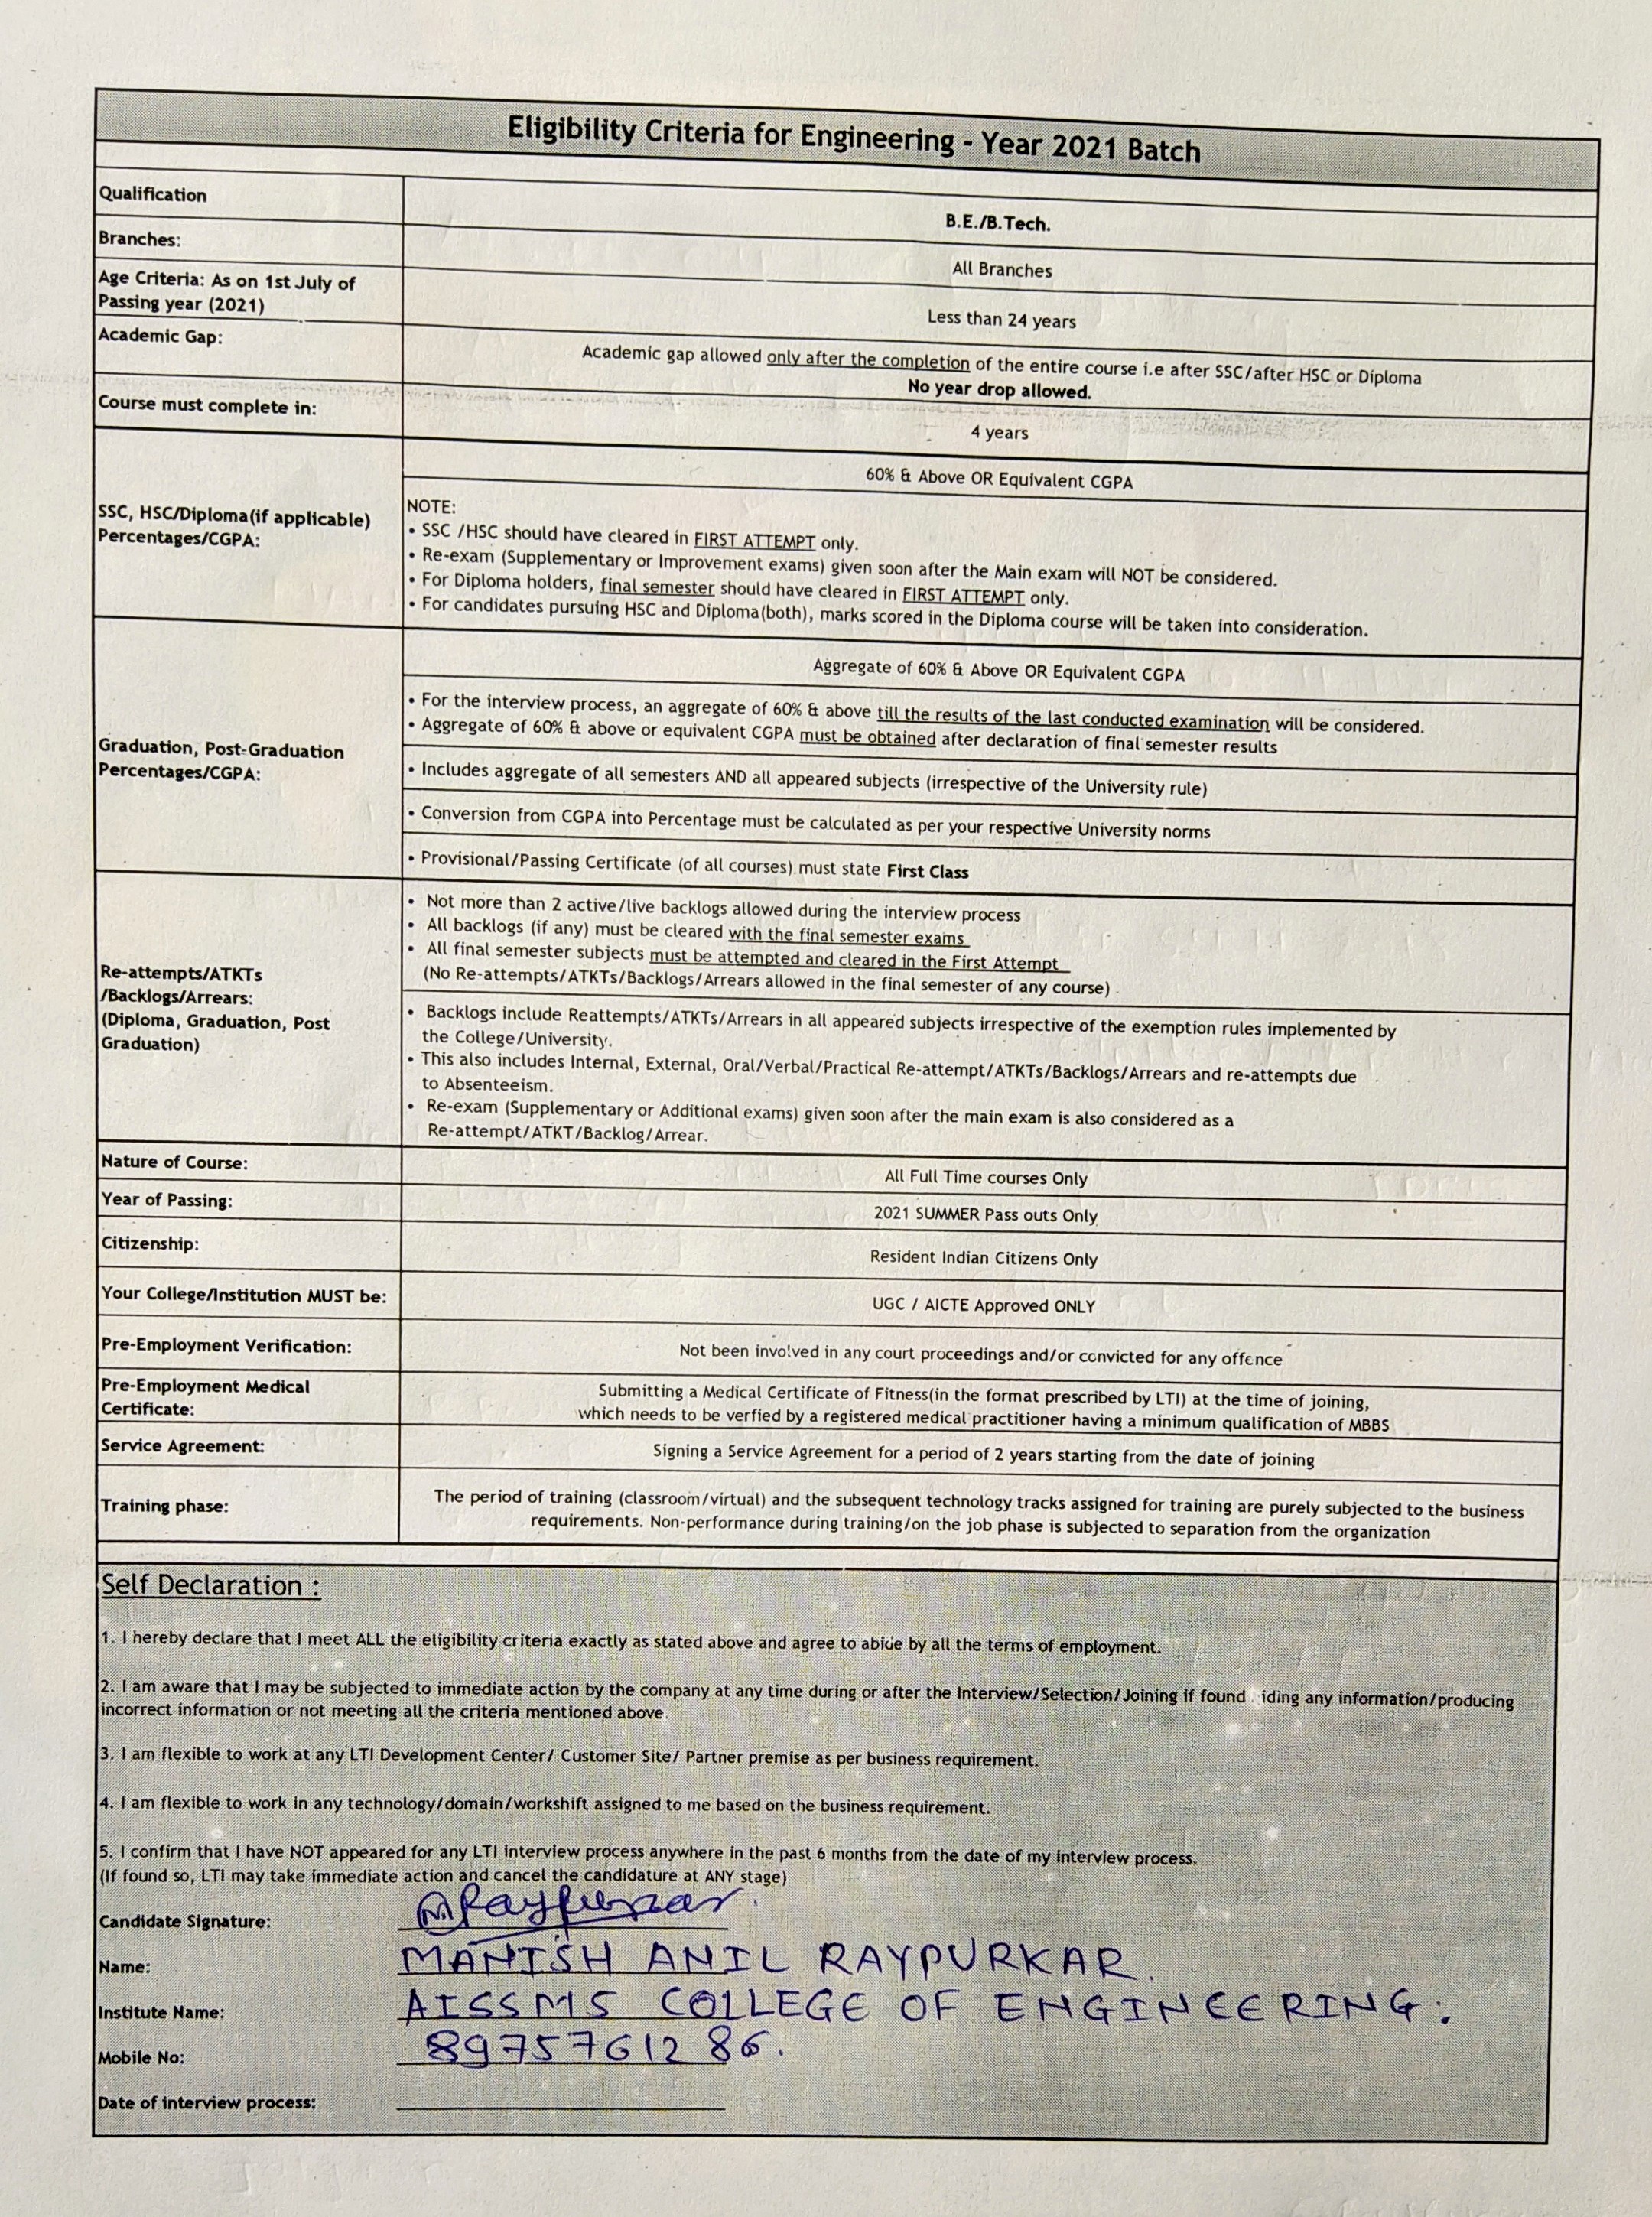 Eligibility Criteria for Engineering - Year 2021 Batch
Qualification
B.E./B.Tech.
Branches:
All Branches
Age Criteria: As on 1st July of
Passing year (2021)
Less than 24 years
Academic Gap:
Academic gap allowed only after the completion of the entire course i.e after SSC/after HSC or Diploma
No year drop allowed.
Course must complete in:
4 years
SSC, HSC/Diploma(if applicable)
Percentages/CGPA:
60% & Above OR Equivalent CGPA
NOTE:
• SSC /HSC should have cleared in FIRST ATTEMPT only.
• Re-exam (Supplementary or Improvement exams) given soon after the Main exam will NOT be considered.
• For Diploma holders, final semester should have cleared in FIRST ATTEMPT only.
• For candidates pursuing HSC and Diploma(both), marks scored in the Diploma course will be taken into consideration.
Graduation, Post-Graduation
Percentages/CGPA:
Aggregate of 60% & Above OR Equivalent CGPA
• For the interview process, an aggregate of 60% & above till the results of the last conducted examination will be considered.
• Aggregate of 60% & above or equivalent CGPA must be obtained after declaration of final semester results
• Includes aggregate of all semesters AND all appeared subjects (irrespective of the University rule)
• Conversion from CGPA into Percentage must be calculated as per your respective University norms
• Provisional/Passing Certificate (of all courses) must state First Class
Re-attempts/ATKTs
/Backlogs/Arrears:
(Diploma, Graduation, Post
Graduation)
• Not more than 2 active/live backlogs allowed during the interview process
• All backlogs (if any) must be cleared with the final semester exams
• All final semester subjects must be attempted and cleared in the First Attempt
(No Re-attempts/ATKTs/Backlogs/Arrears allowed in the final semester of any course)
• Backlogs include Reattempts/ATKTs/Arrears in all appeared subjects irrespective of the exemption rules implemented by
the College/University.
• This also includes Internal, External, Oral/Verbal/Practical Re-attempt/ATKTs/Backlogs/Arrears and re-attempts due
to Absenteeism.
• Re-exam (Supplementary or Additional exams) given soon after the main exam is also considered as a
Re-attempt/ATKT/Backlog/Arrear.
Nature of Course:
All Full Time courses Only
Year of Passing:
2021 SUMMER Pass outs Only
Citizenship:
Resident Indian Citizens Only
Your College/Institution MUST be:
UGC / AICTE Approved ONLY
Pre-Employment Verification:
Not been involved in any court proceedings and/or convicted for any offence
Pre-Employment Medical
Certificate:
Submitting a Medical Certificate of Fitness(in the format prescribed by LTI) at the time of joining,
which needs to be verfied by a registered medical practitioner having a minimum qualification of MBBS
Service Agreement:
Signing a Service Agreement for a period of 2 years starting from the date of joining
Training phase:
The period of training (classroom/virtual) and the subsequent technology tracks assigned for training are purely subjected to the business
requirements. Non-performance during training/on the job phase is subjected to separation from the organization
Self Declaration :
1. I hereby declare that I meet ALL the eligibility criteria exactly as stated above and agree to abide by all the terms of employment.
2. I am aware that I may be subjected to immediate action by the company at any time during or after the Interview/Selection/Joining if found iding any information/producing
incorrect information or not meeting all the criteria mentioned above.
3. I am flexible to work at any LTI Development Center/ Customer Site/ Partner premise as per business requirement.
4. I am flexible to work in any technology/domain/workshift assigned to me based on the business requirement.
5. I confirm that I have NOT appeared for any LTI interview process anywhere in the past 6 months from the date of my interview process.
(If found so, LTI may take immediate action and cancel the candidature at ANY stage)
Candidate Signature: MRaypurkar.
Name: MANISH ANIL RAYPURKAR.
Institute Name: AISSMS COLLEGE OF ENGINEERING.
Mobile No: 8975761286.
Date of interview process: